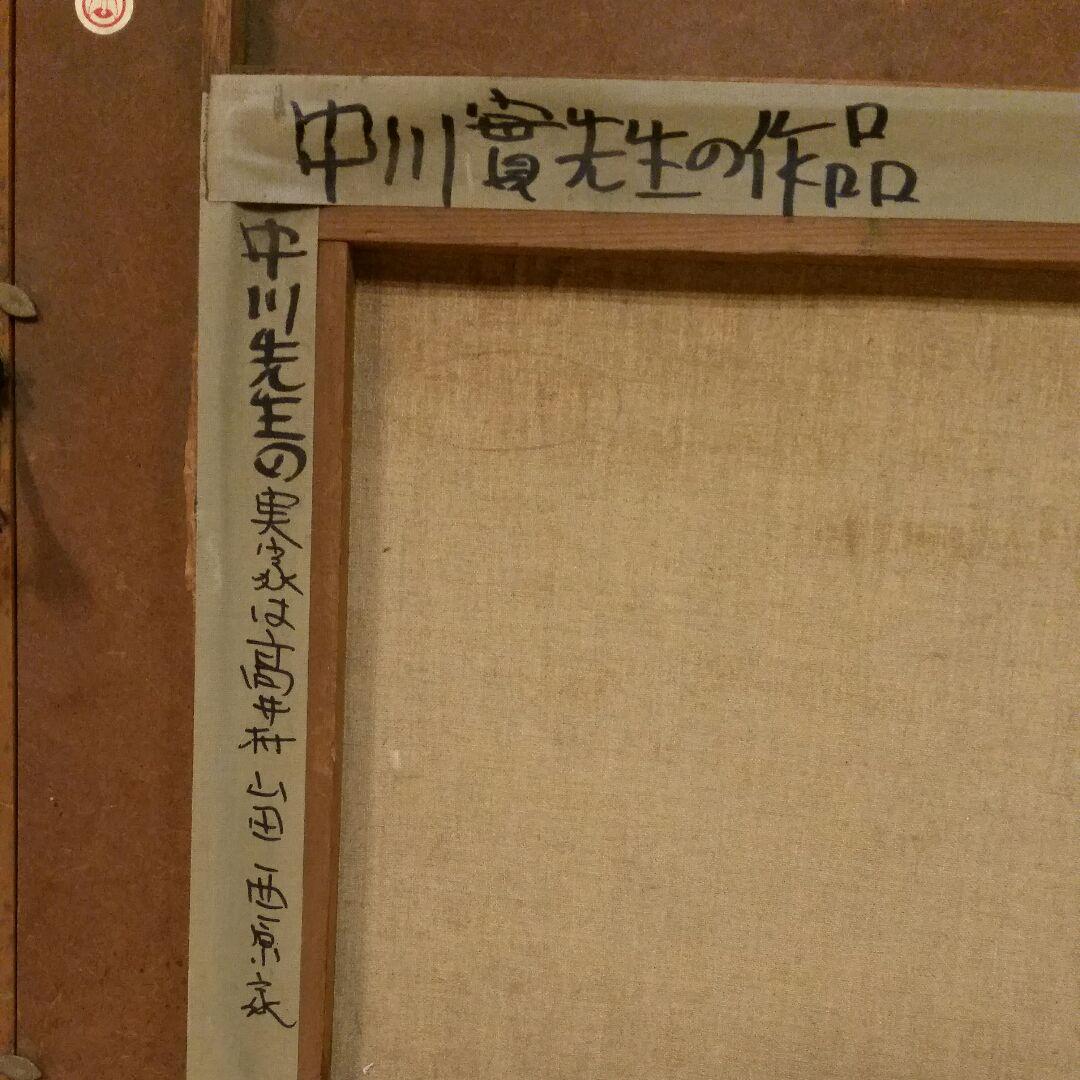 中川實先生の作品
中川先生の実家は酒井村上田西原家